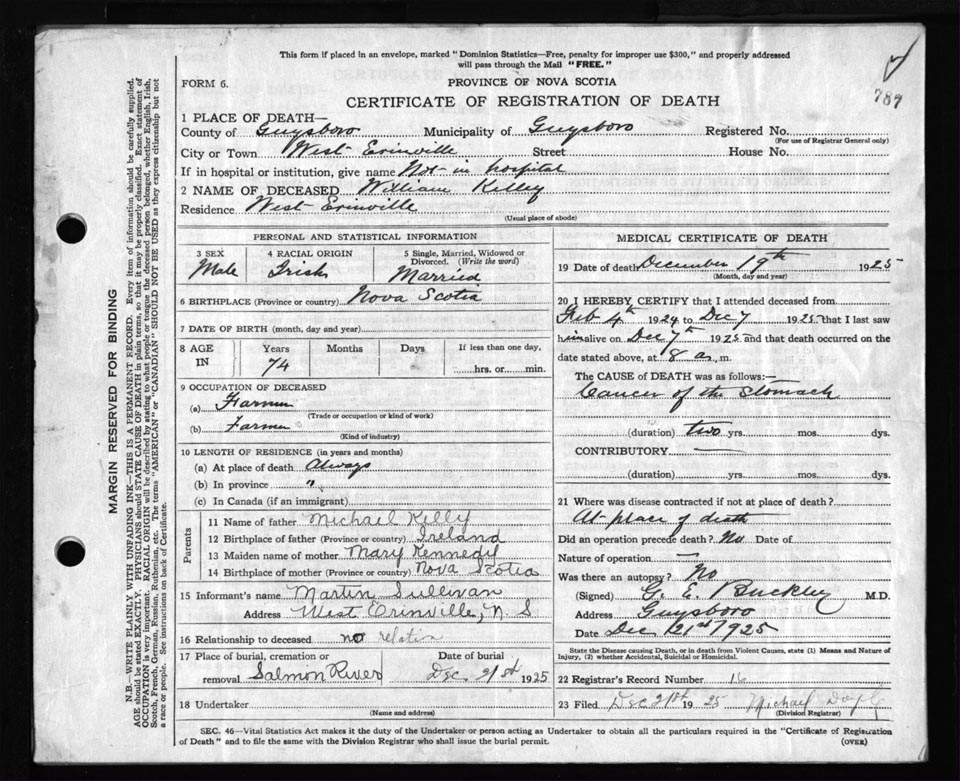 This form if placed in an envelope, marked "Dominion Statistics—Free, penalty for improper use $300," and properly addressed
will pass through the Mail "FREE."
FORM 6.
PROVINCE OF NOVA SCOTIA
787
CERTIFICATE OF REGISTRATION OF DEATH
1 PLACE OF DEATH—
County of Guysboro Municipality of Guysboro Registered No.
(For use of Registrar General only)
City or Town West Erinville Street House No.
If in hospital or institution, give name Not in hospital
2 NAME OF DECEASED William Kelley
Residence West Erinville
(Usual place of abode)
PERSONAL AND STATISTICAL INFORMATION
3 SEX Male
4 RACIAL ORIGIN Irish
5 Single, Married, Widowed or Divorced. (Write the word) Married
6 BIRTHPLACE (Province or country) Nova Scotia
7 DATE OF BIRTH (month, day and year)
8 AGE IN Years 74 Months Days If less than one day, hrs. or min.
9 OCCUPATION OF DECEASED
(a) Farmer
(Trade or occupation or kind of work)
(b) Farmer
(Kind of industry)
10 LENGTH OF RESIDENCE (in years and months)
(a) At place of death Always
(b) In province "
(c) In Canada (if an immigrant)
Parents
11 Name of father Michael Kelly
12 Birthplace of father (Province or country) Ireland
13 Maiden name of mother Mary Kennedy
14 Birthplace of mother (Province or country) Nova Scotia
15 Informant's name Martin Sullivan
Address West Erinville, N S
16 Relationship to deceased no relation
17 Place of burial, cremation or removal Salmon River
Date of burial Dec 21st 1925
18 Undertaker
(Name and address)
MEDICAL CERTIFICATE OF DEATH
19 Date of death December 19th 1925
(Month, day and year)
20 I HEREBY CERTIFY that I attended deceased from
Feb 4th 1924 to Dec 7 1925 that I last saw
him alive on Dec 7th 1925 and that death occurred on the
date stated above, at 8 a. m.
The CAUSE OF DEATH was as follows:—
Cancer of the Stomach
(duration) two yrs. mos. dys.
CONTRIBUTORY —
(duration) yrs. mos. dys.
21 Where was disease contracted if not at place of death?
At place of death
Did an operation precede death? No Date of
Nature of operation —
Was there an autopsy? No
(Signed) G. E. Buckley M.D.
Address Guysboro
Date Dec 21st 1925
State the Disease causing Death, or in death from Violent Causes, state (1) Means and Nature of
Injury, (2) whether Accidental, Suicidal or Homicidal.
22 Registrar's Record Number 16
23 Filed Dec 21st 1925 Michael
(Division Registrar)
SEC. 46—Vital Statistics Act makes it the duty of the Undertaker or person acting as Undertaker to obtain all the particulars required in the "Certificate of Registration
of Death" and to file the same with the Division Registrar who shall issue the burial permit.
(OVER)
MARGIN RESERVED FOR BINDING
N.B.—WRITE PLAINLY WITH UNFADING INK—THIS IS A PERMANENT RECORD. Every item of information should be carefully supplied.
AGE should be stated EXACTLY. PHYSICIANS should STATE CAUSE OF DEATH in plain terms, so that it may be properly classified. Exact statement of
OCCUPATION is very important. RACIAL ORIGIN will be described by stating to what people or tongue the deceased person belonged, whether English, Irish,
Scotch, French, German, Russian, Ruthenian, etc. The terms "AMERICAN" or "CANADIAN" SHOULD NOT BE USED as they express citizenship but not
a race or people. See instructions on back of Certificate.